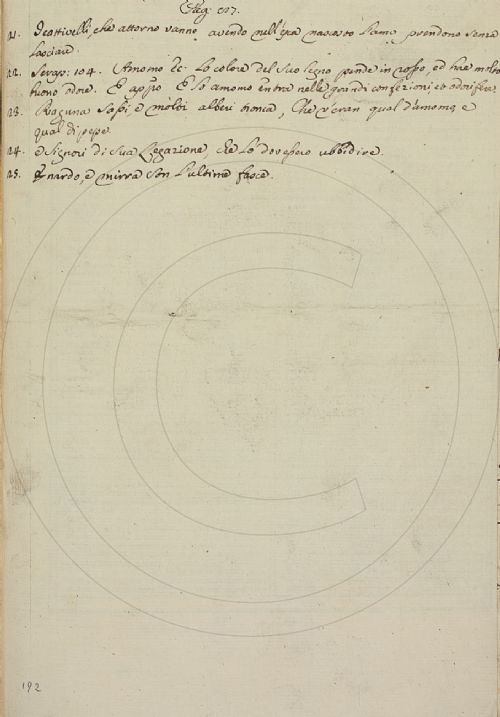 Pag. 127.
21. I cattivelli, che attorno vanno avendo nell'esca nascosto l'amo, prendono senza
lasciare.
22. Seragr. 104. Amomo &c. Lo colore del suo legno pende in rosso, ed hae molto
buono odore. E appo. E lo amomo entra nelle grandi confezioni, et odorifere.
23. Raguna sassi, e molti alberi tronca, Che v'eran qual d'amomo, e
qual di pepe.
24. e Signori di sua Legazione, che lo dovessero ubbidire.
25. E nardo, e mirra son l'ultime fasce.
192